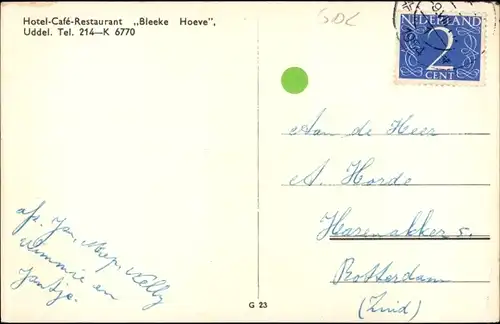 Hotel-Café-Restaurant „Bleeke Hoeve",
Uddel. Tel. 214—K 6770
SDL
NEDERLAND
2
CENT
Aan de Heer
A. Horde
Harenakker 5.
Rotterdam
(Zuid)
afz. Jan, Miep, Nelly
Wimmie en
Jantje.
G 23